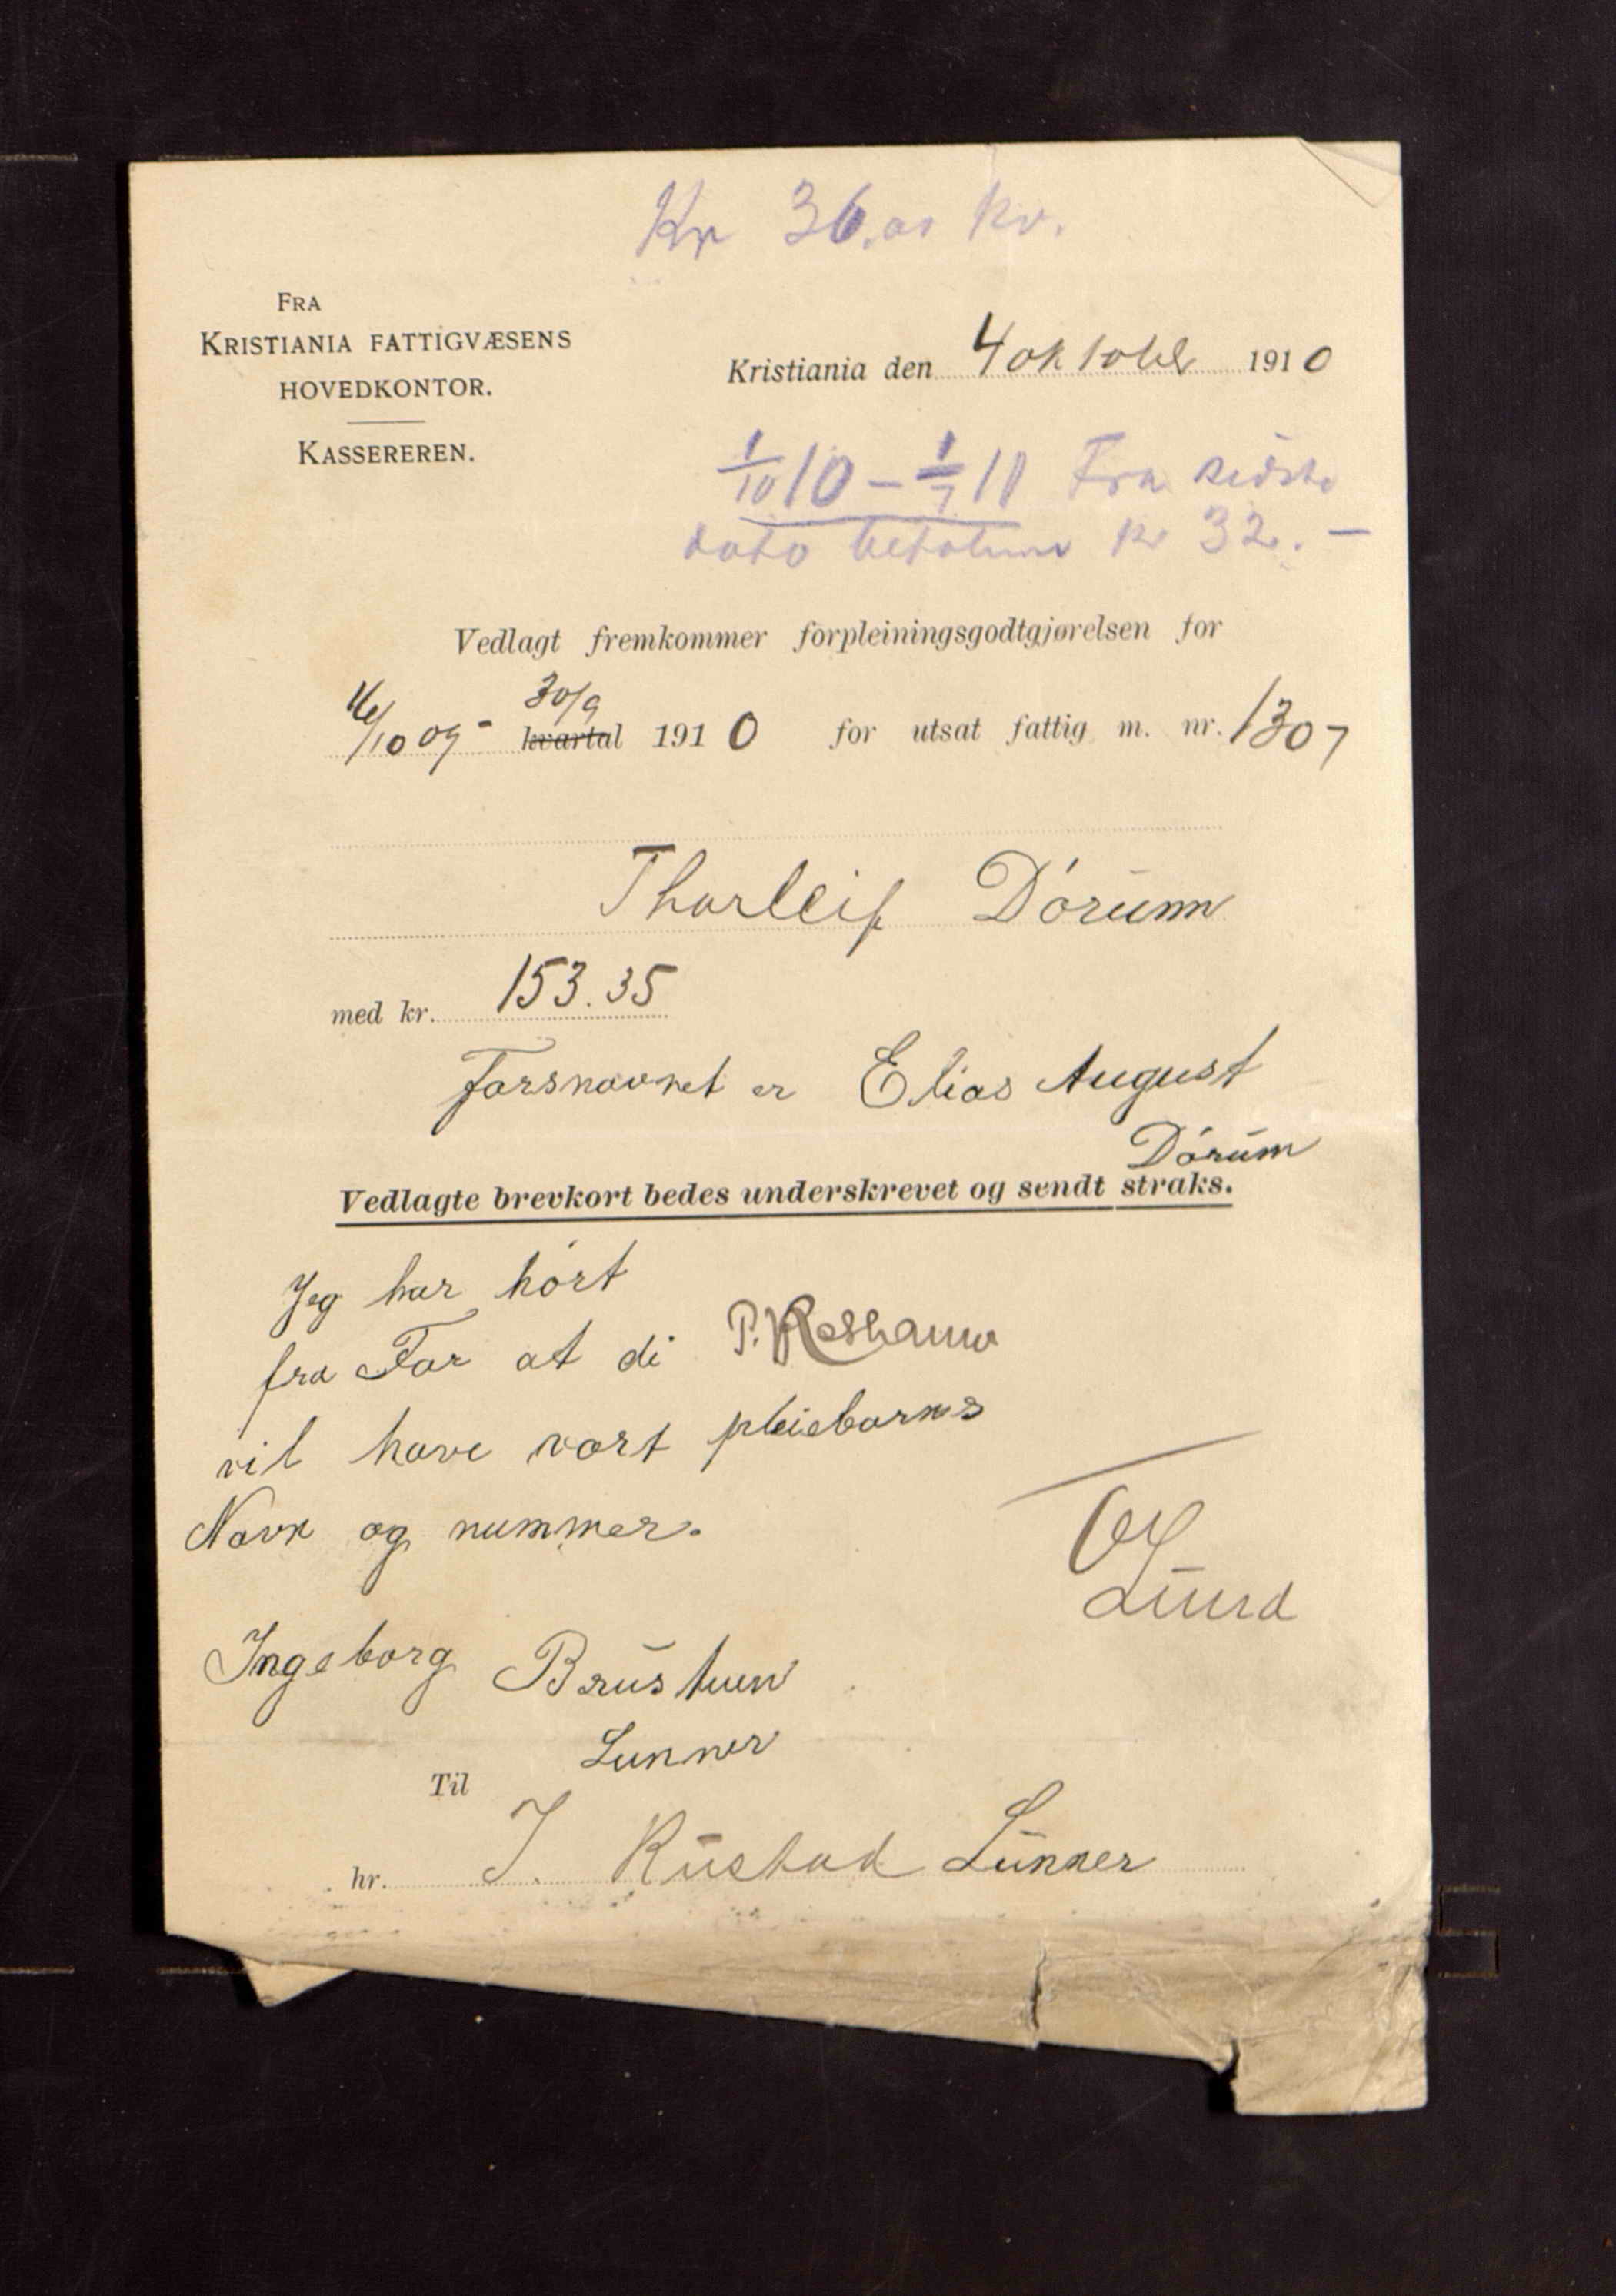 Kr 36.00 kv.
FRA
KRISTIANIA FATTIGVÆSENS
HOVEDKONTOR.
KASSEREREN.
Kristiania den 4 oktober 1910
1/10 10 – 1/7 11 Fra sidste
dato betales kr 32.–
Vedlagt fremkommer forpleiningsgodtgjørelsen for
16/10 09 - 30/9
kvartal 1910 for utsat fattig m. nr. 1307
Thorleif Dórum
med kr. 153.35
Farsnavnet er Elias August
Dórum
Vedlagte brevkort bedes underskrevet og sendt straks.
Jeg har hört
fra Far at di
vil have vort pleiebarns
Navn og nummer.
Lund
Ingeborg Brustuen
Lunner
Til
hr. J. Rustad Lunner